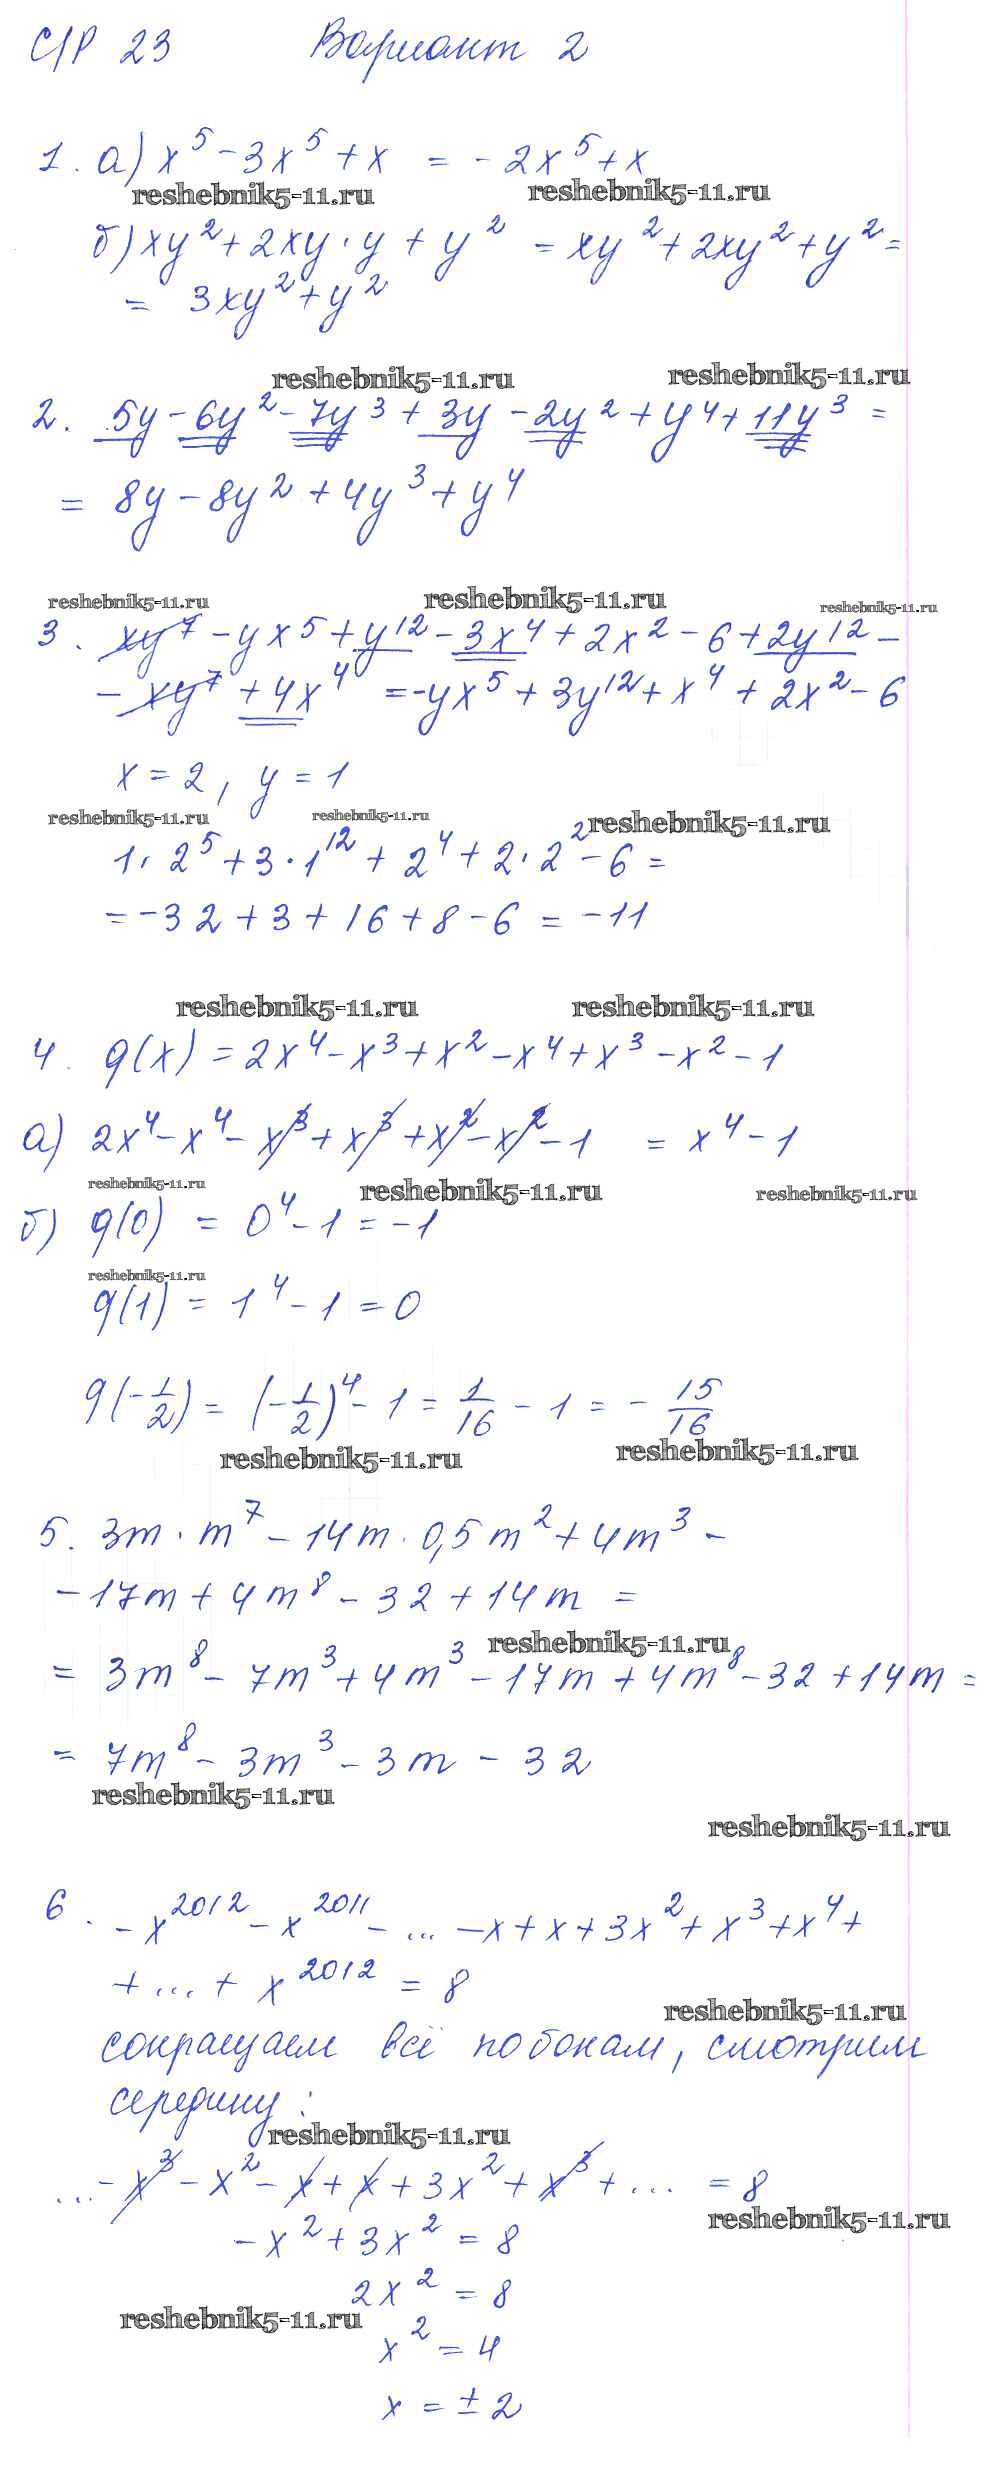 С/Р 23 Вариант 2
1. а) x⁵ - 3x⁵ + x = - 2x⁵ + x
reshebnik5-11.ru reshebnik5-11.ru
б) xy² + 2xy · y + y² = xy² + 2xy² + y² =
= 3xy² + y²
reshebnik5-11.ru reshebnik5-11.ru
2. 5y - 6y² - 7y³ + 3y - 2y² + y⁴ + 11y³ =
= 8y - 8y² + 4y³ + y⁴
reshebnik5-11.ru reshebnik5-11.ru reshebnik5-11.ru
3. xy⁷ - yx⁵ + y¹² - 3x⁴ + 2x² - 6 + 2y¹² -
- xy⁷ + 4x⁴ = -yx⁵ + 3y¹² + x⁴ + 2x² - 6
x = 2, y = 1
reshebnik5-11.ru reshebnik5-11.ru reshebnik5-11.ru
1 · 2⁵ + 3 · 1¹² + 2⁴ + 2 · 2² - 6 =
= -32 + 3 + 16 + 8 - 6 = -11
reshebnik5-11.ru reshebnik5-11.ru
4. g(x) = 2x⁴ - x³ + x² - x⁴ + x³ - x² - 1
а) 2x⁴ - x⁴ - x³ + x³ + x² - x² - 1 = x⁴ - 1
reshebnik5-11.ru reshebnik5-11.ru reshebnik5-11.ru
б) g(0) = 0⁴ - 1 = -1
reshebnik5-11.ru
g(1) = 1⁴ - 1 = 0
g(-1/2) = (-1/2)⁴ - 1 = 1/16 - 1 = - 15/16
reshebnik5-11.ru reshebnik5-11.ru
5. 3m · m⁷ - 14m · 0,5m² + 4m³ -
- 17m + 4m⁸ - 32 + 14m =
reshebnik5-11.ru
= 3m⁸ - 7m³ + 4m³ - 17m + 4m⁸ - 32 + 14m =
= 7m⁸ - 3m³ - 3m - 32
reshebnik5-11.ru
reshebnik5-11.ru
6. - x²⁰¹² - x²⁰¹¹ - ... - x + x + 3x² + x³ + x⁴ +
+ ... + x²⁰¹² = 8
reshebnik5-11.ru
сокращаем всё по бокам, смотрим
середину:
reshebnik5-11.ru
... - x³ - x² - x + x + 3x² + x³ + ... = 8
reshebnik5-11.ru
- x² + 3x² = 8
2x² = 8
reshebnik5-11.ru
x² = 4
x = ± 2